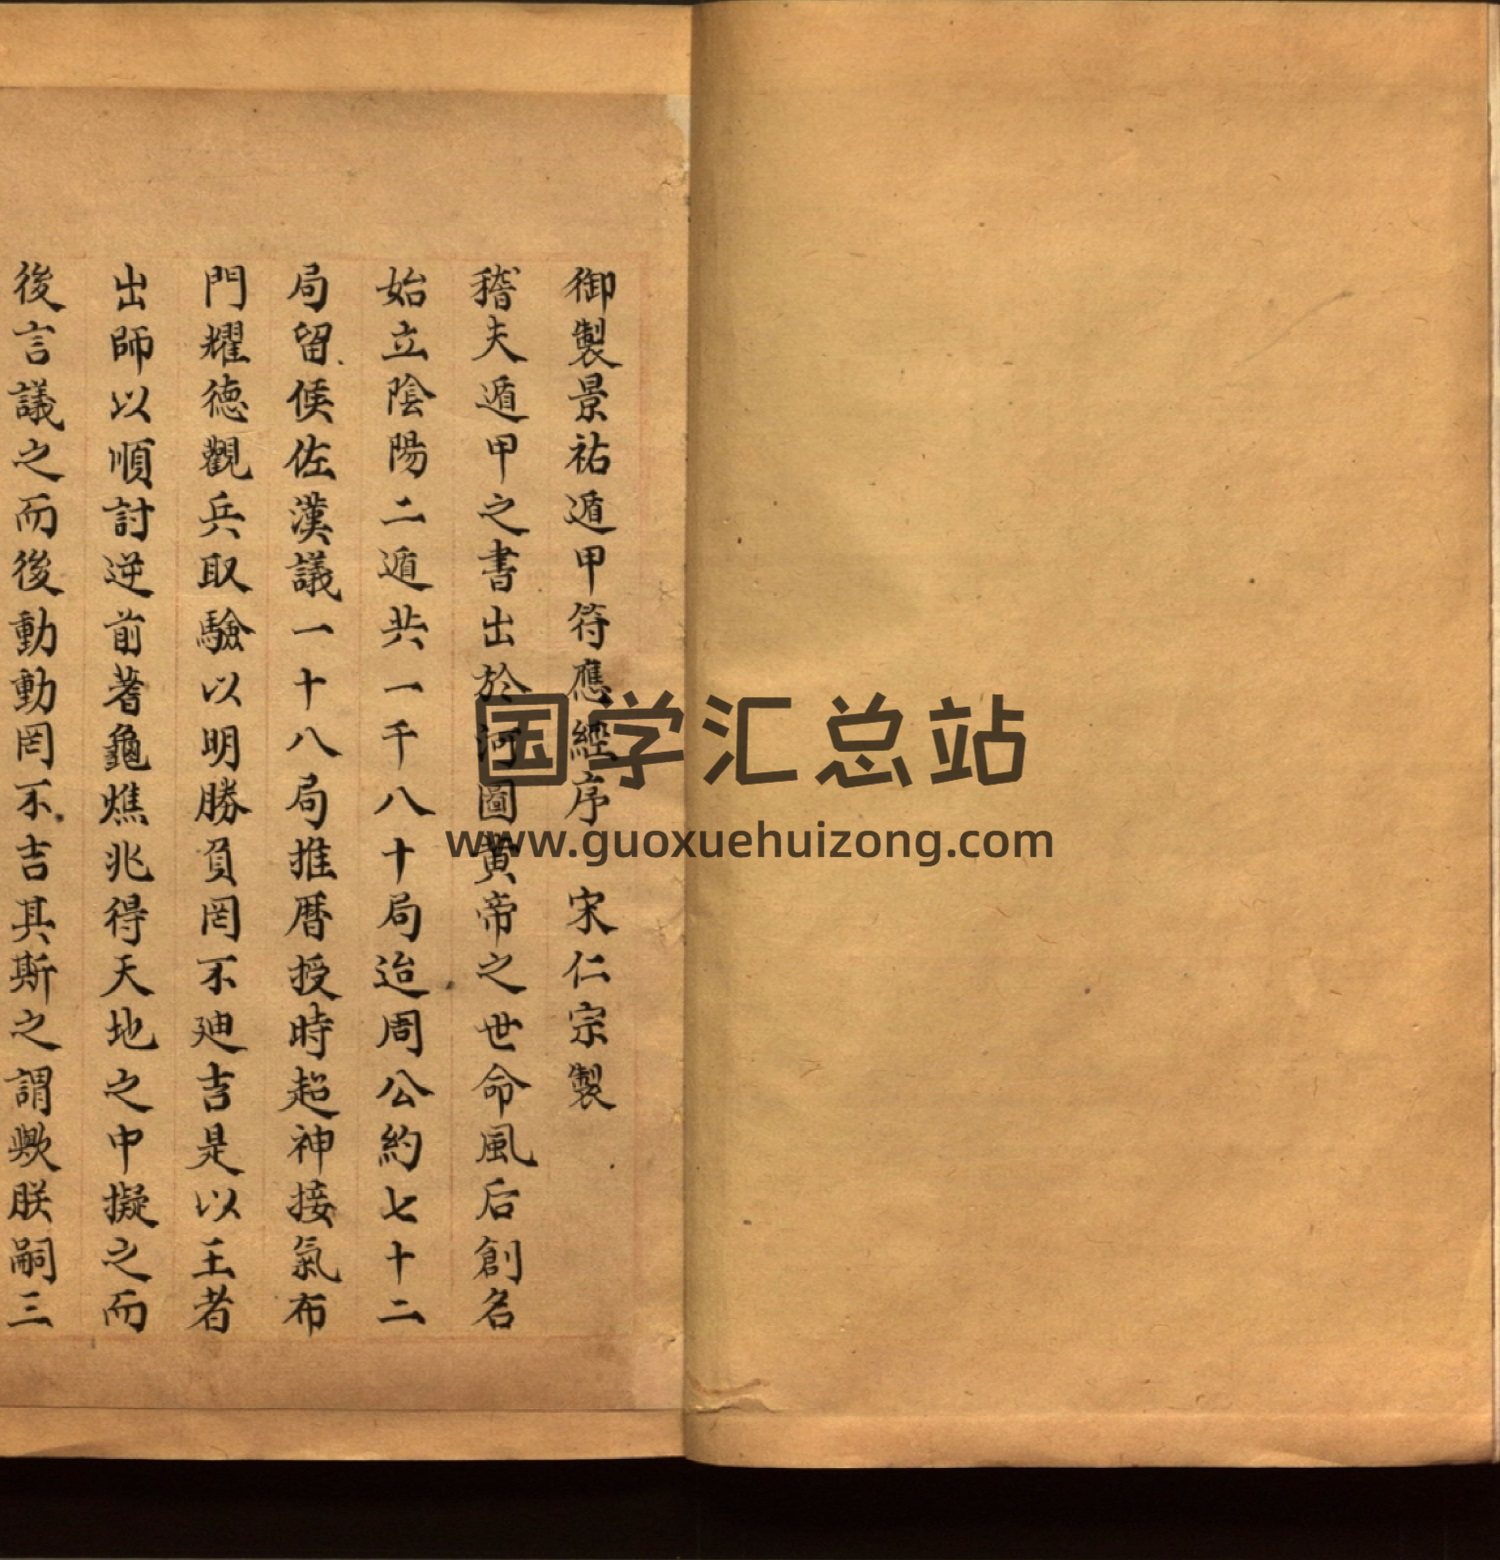 御製景祐遁甲符應經序 宋仁宗製
稽夫遁甲之書出於河圖黄帝之世命風后創名
始立陰陽二遁共一千八十局迨周公約七十二
局留侯佐漢議一十八局推曆授時超神接氣布
門耀德觀兵取驗以明勝負罔不廸吉是以王者
出師以順討逆前著龜燋兆得天地之中擬之而
後言議之而後動動罔不吉其斯之謂歟朕嗣三
国学汇总站
www.guoxuehuizong.com